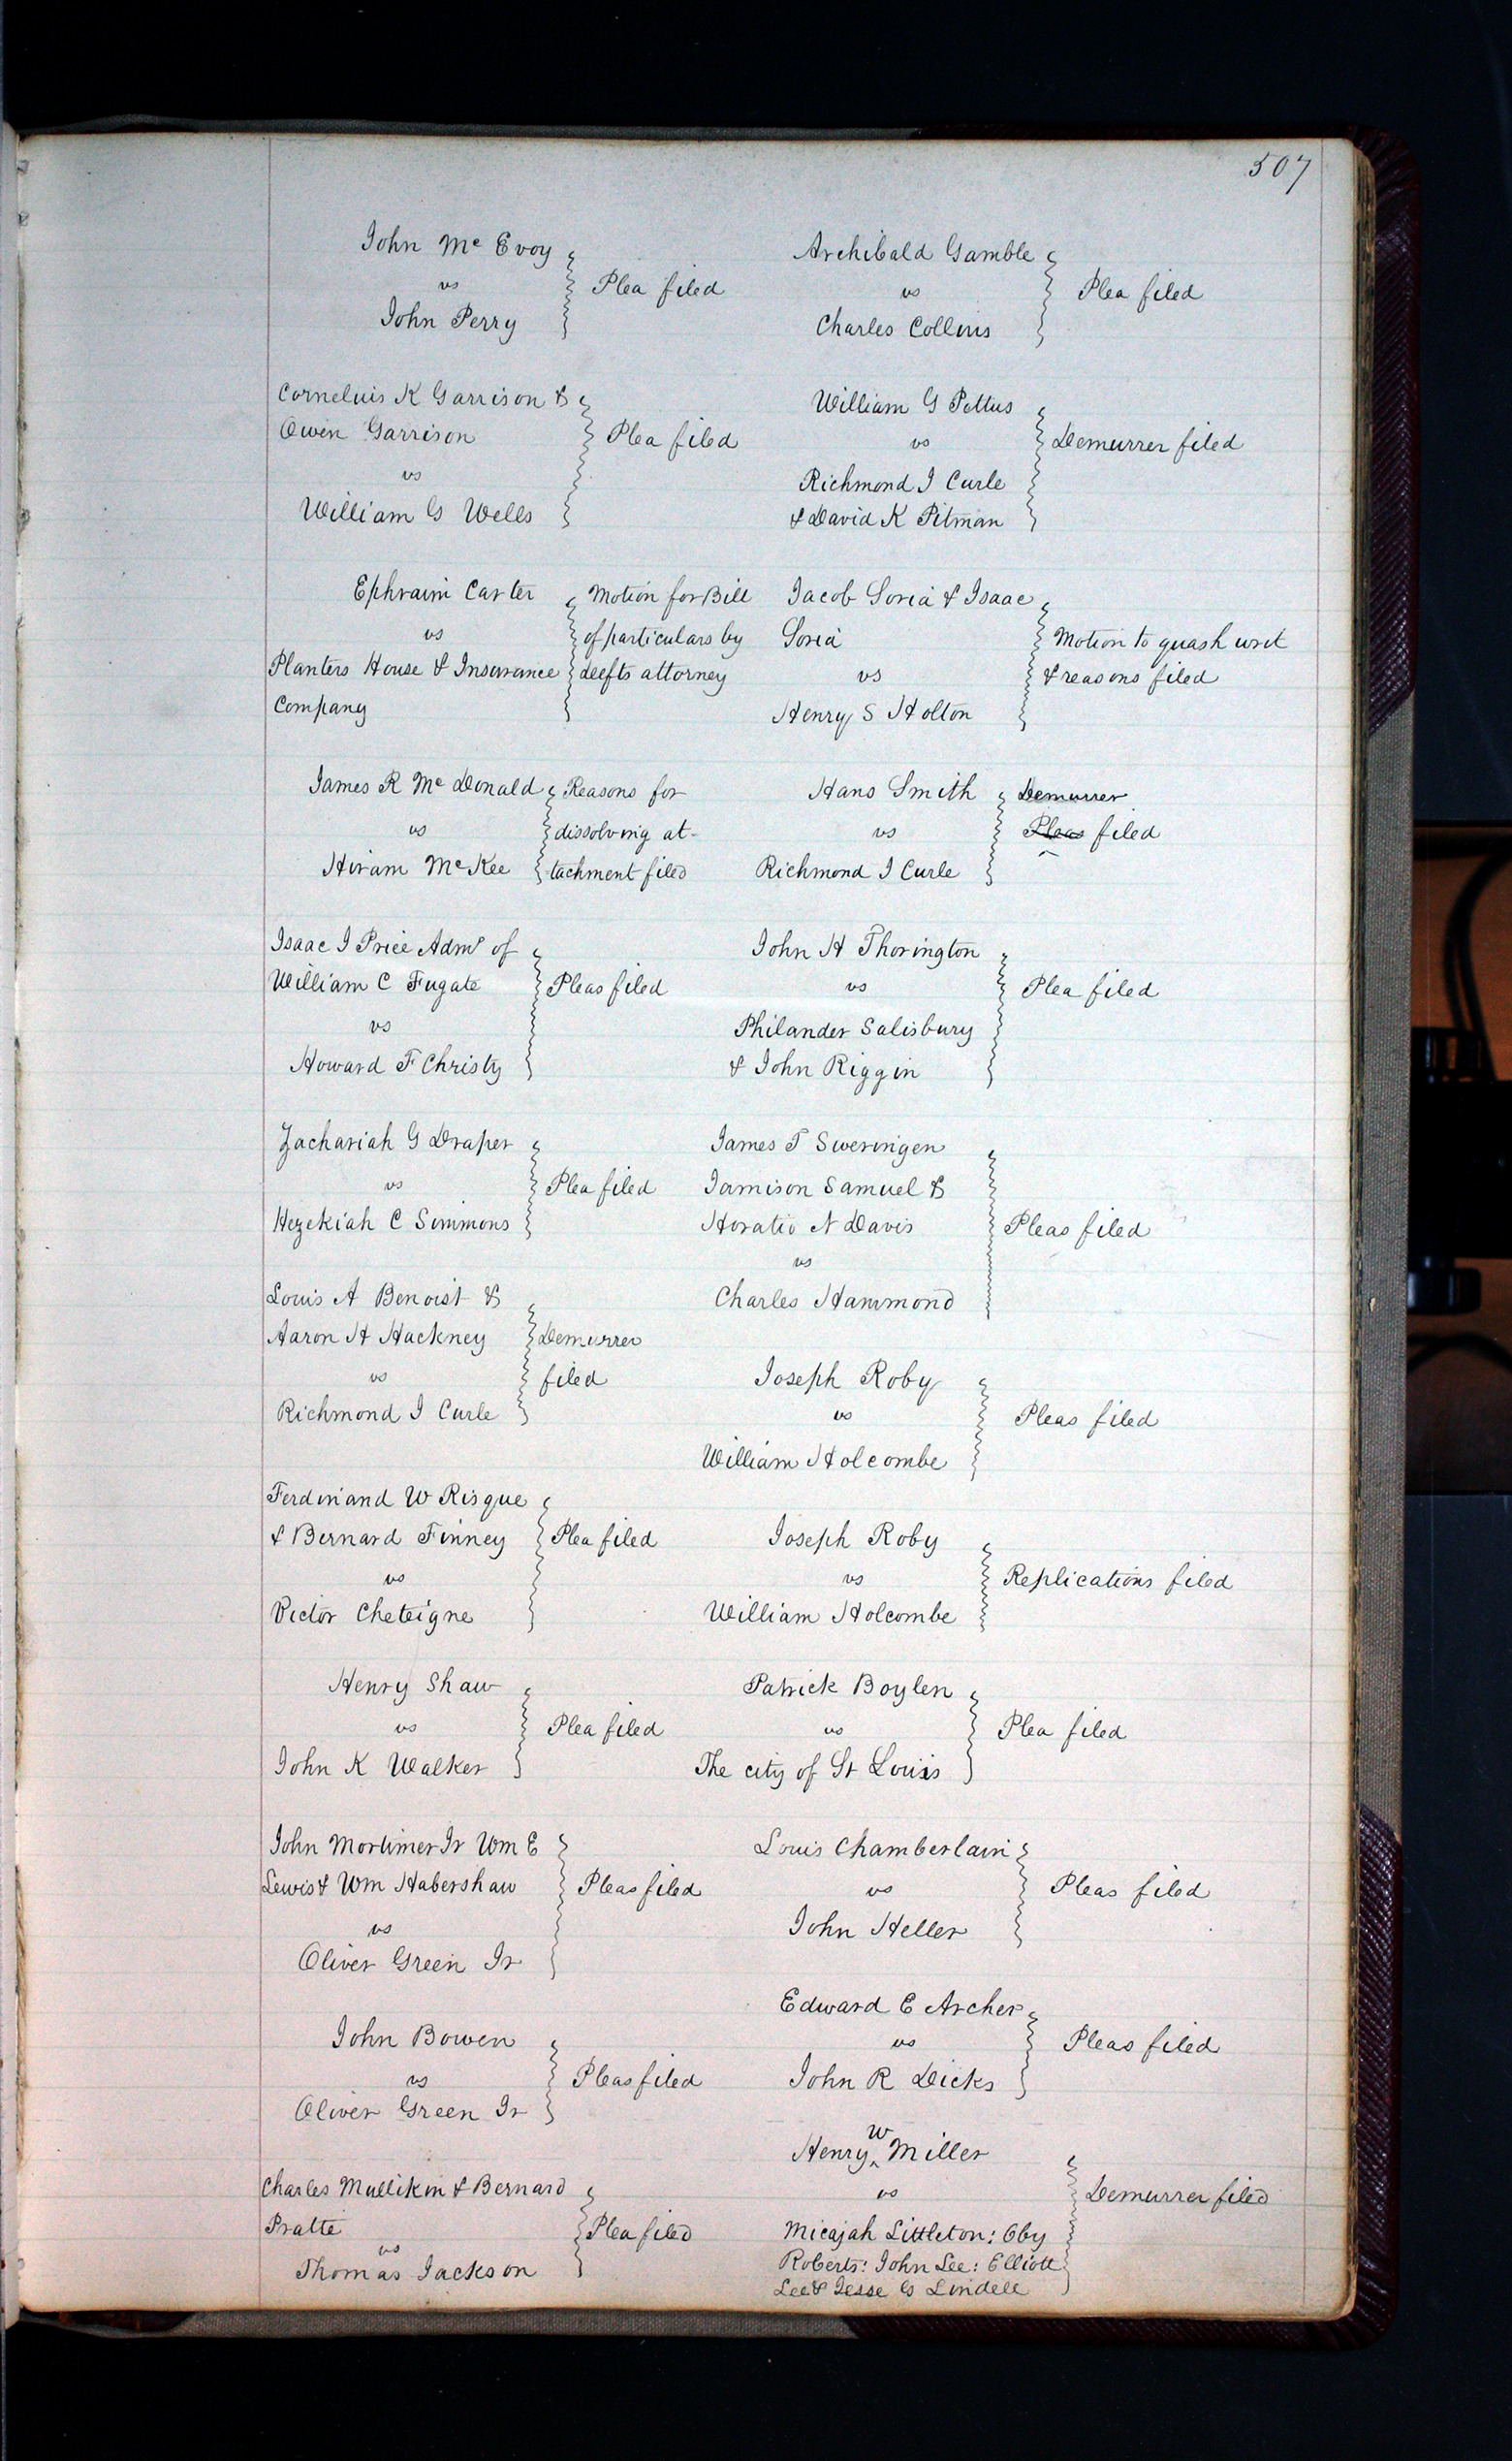 507
John Mc Evoy
vs
John Perry
Plea filed
Corneluis K Garrison &
Owen Garrison
vs
William G Wells
Plea filed
Ephraim Carter
vs
Planters House & Insurance
Company
Motion for Bill
of particulars by
deefts attorney
James R Mc Donald
vs
Hiram McKee
Reasons for
dissolving at-
tachment filed
Isaac J Price Admr of
William C Fugate
vs
Howard F Christy
Pleas filed
Zachariah G Draper
vs
Hezekiah C Simmons
Plea filed
Louis A Benoist &
Aaron H Hackney
vs
Richmond J Curle
Demurrer
filed
Ferdinand W Risque
& Bernard Finney
vs
Victor Cheteigne
Plea filed
Henry Shaw
vs
John K Walker
Plea filed
John Mortimer Jr Wm E
Lewis & Wm Habershaw
vs
Oliver Green Jr
Pleas filed
John Bowen
vs
Oliver Green Jr
Pleas filed
Charles Mullikin & Bernard
Pratte
vs
Thomas Jackson
Plea filed
Archibald Gamble
vs
Charles Collins
Plea filed
William G Pettus
vs
Richmond J Curle
& David K Pitman
Demurrer filed
Jacob Soria & Isaac
Soria
vs
Henry S Holton
Motion to quash writ
& reasons filed
Hans Smith
vs
Richmond J Curle
Demurrer
Pleas filed
John H Thorington
vs
Philander Salisbury
& John Riggin
Plea filed
James T Sweringen
Jamison Samuel &
Horatio N Davis
vs
Charles Hammond
Pleas filed
Joseph Roby
vs
William Holcombe
Pleas filed
Joseph Roby
vs
William Holcombe
Replications filed
Patrick Boylen
vs
The city of St Louis
Plea filed
Louis Chamberlain
vs
John Heller
Pleas filed
Edward E Archer
vs
John R Dicks
Pleas filed
Henry W Miller
vs
Micajah Littleton: Oby
Roberts: John Lee: Elliott
Lee & Jesse G Lindell
Demurrer filed